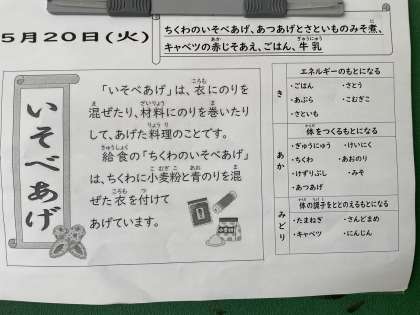 5月20日(火)
ちくわのいそべあげ、あつあげとさといものみそ煮、
キャベツの赤じそあえ、ごはん、牛乳
いそべあげ
「いそべあげ」は、衣にのりを
混ぜたり、材料にのりを巻いたり
して、あげた料理のことです。
給食の「ちくわのいそべあげ」
は、ちくわに小麦粉と青のりを混
ぜた衣を付けて
あげています。
き
エネルギーのもとになる
・ごはん ・さとう
・あぶら ・こむぎこ
・さといも
あか
体をつくるもとになる
・ぎゅうにゅう ・けいにく
・ちくわ ・あおのり
・けずりぶし ・みそ
・あつあげ
みどり
体の調子をととのえるもとになる
・たまねぎ ・さんどまめ
・キャベツ ・にんじん